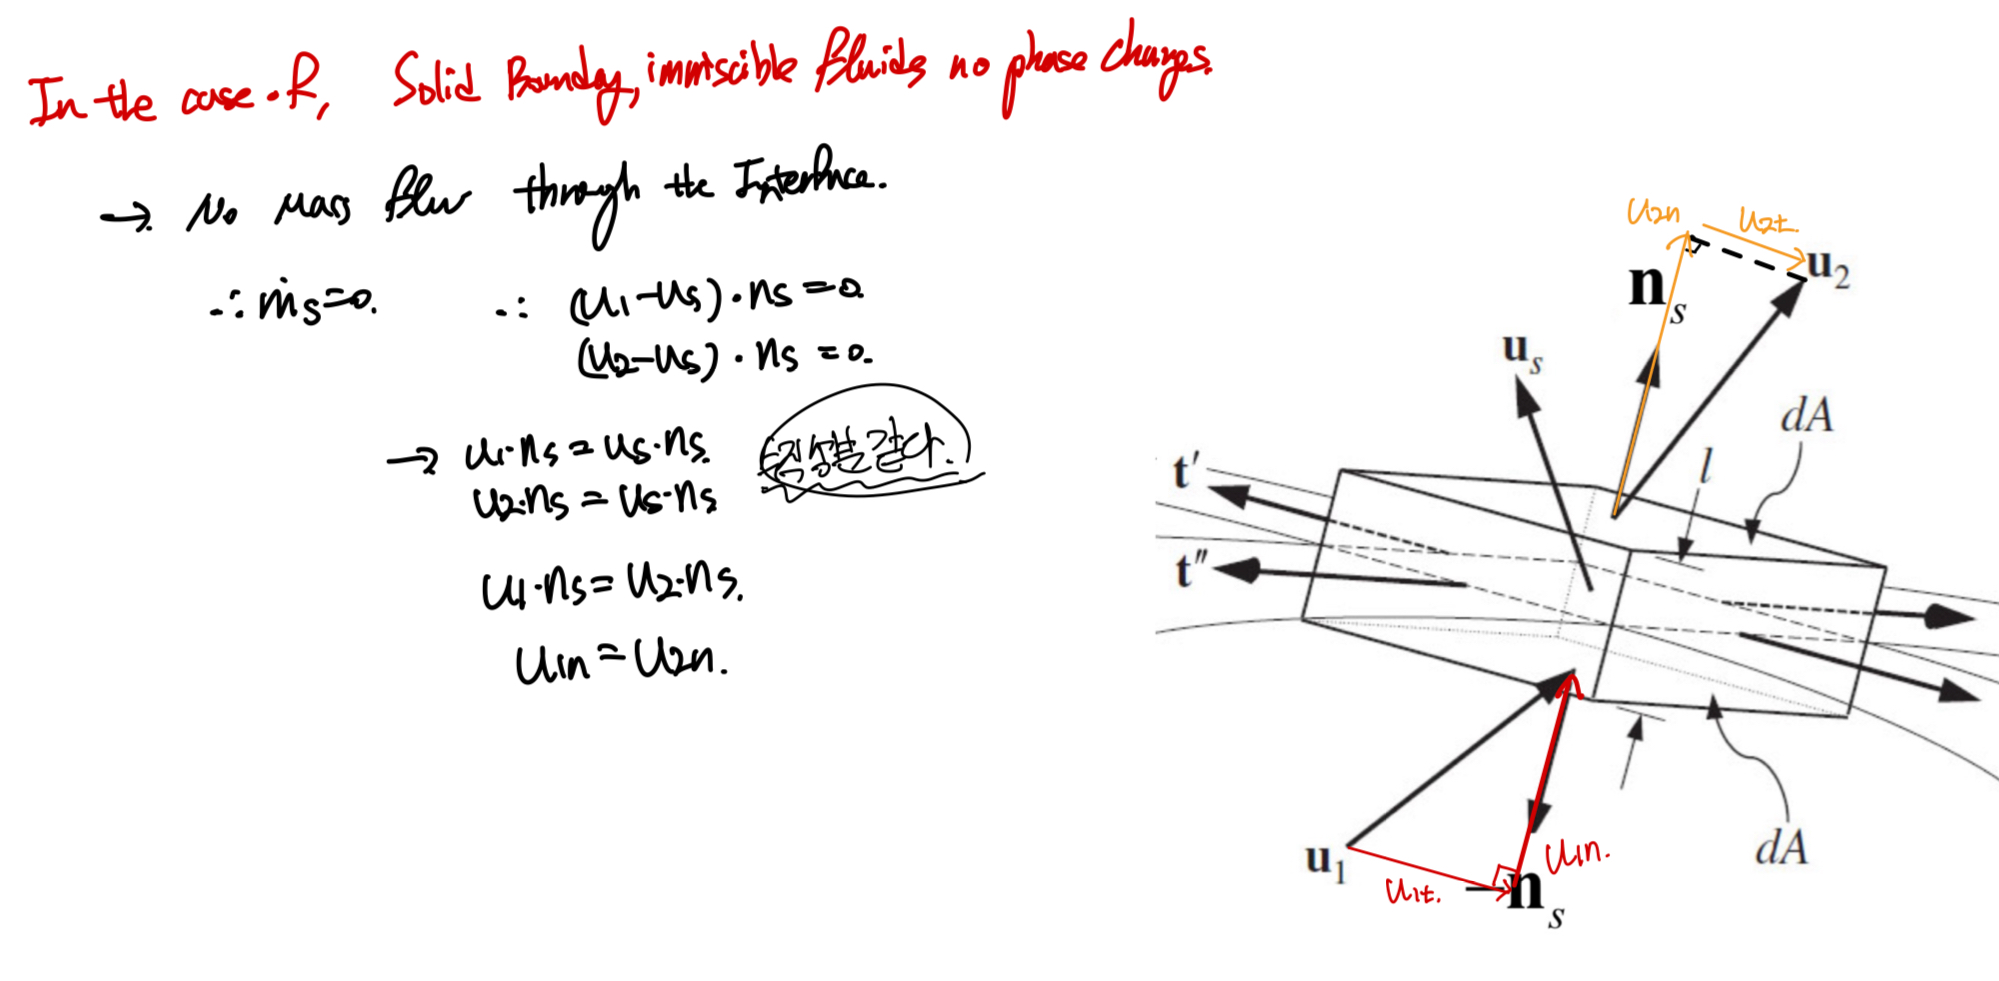 In the case of, Solid Boundary, immiscible fluids no phase changes.
→ No Mass flux through the Interface.
∴ ṁs=0. ∴ (u₁-us)·ns=0.
(u₂-us)·ns=0.
→ u₁·ns=us·ns.
u₂·ns=us·ns
수직성분 같다.
u₁·ns=u₂·ns.
u₁n=u₂n.
u₂n u₂t.
n_s u₂
u_s
dA
l
t′
t″
u₁n.
u₁ dA
u₁t. −n_s